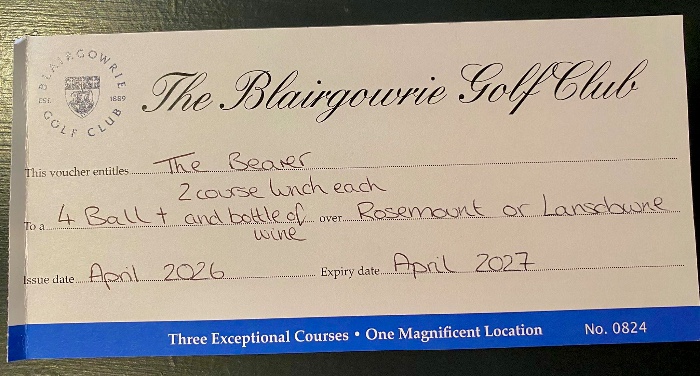 BLAIRGOWRIE
EST. 1889
GOLF CLUB
The Blairgowrie Golf Club
This voucher entitles The Bearer
2 course lunch each
To a 4 Ball + and bottle of over Rosemount or Lansdowne
wine
Issue date April 2026 Expiry date April 2027
Three Exceptional Courses • One Magnificent Location No. 0824